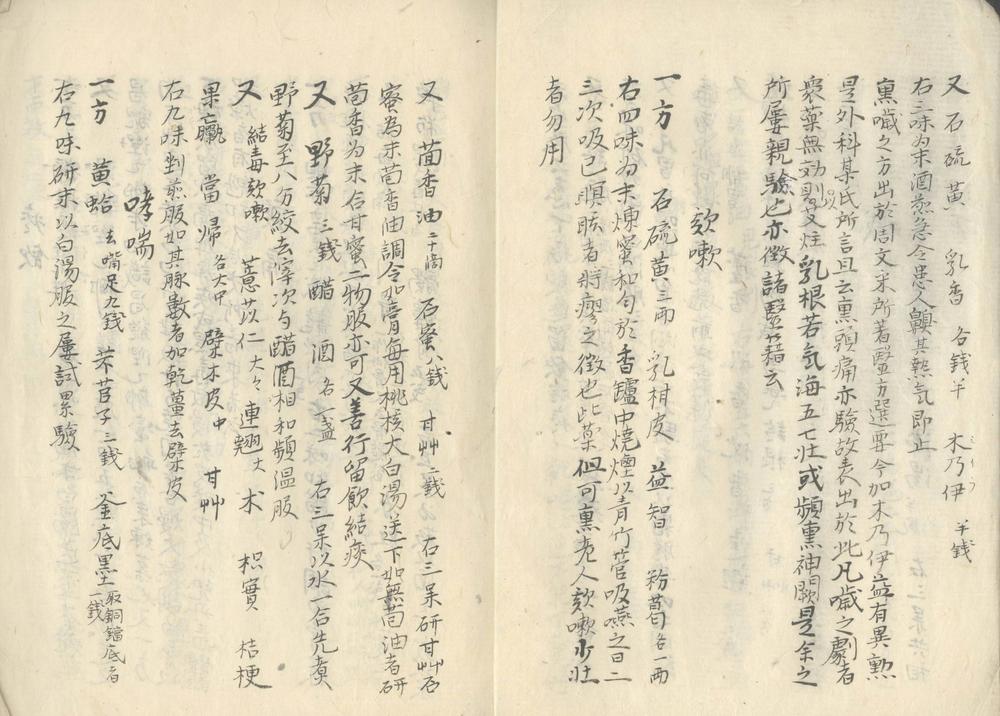 又 石硫黄 乳香 各銭半 木乃伊 半銭
右三味為末酒煎急令患人齅其熱気即止
熏噦之方出於周文采所著醫方選要今加木乃伊益有異勲
是外科某氏所言且云熏頭痛亦験故表出於此凡噦之劇者
衆薬無効則以艾炷乳根若気海五七壮或頻熏神闕是余之
所屢親験也亦徴諸醫籍云
欬嗽
一方 石硫黄三両 乳柑皮 益智 粉蔔各一両
右四味為末煉蜜和匀於香鑪中焼煙以青竹管吸嚥之日二
三次吸已瞑眩者将瘳之徴也此薬但可熏老人欬嗽少壮
者勿用
又 茴香油二十滴 石蜜八銭 甘艸二銭 右三味研甘艸石
蜜為末茴香油調令如膏毎用桃核大白湯送下如無茴油者研
茴香為末合甘蜜二物服亦可又善行留飲結痰
又方 野菊三銭 醋 酒各一盞 右三味以水一合先煮
野菊至八分絞去滓次匀醋酒相和頻温服
又 結毒欬嗽 薏苡仁大々 連翹大 朮 枳實 桔梗
果蠃 當帰各大中 檗木皮中 甘艸
右九味剉煎服如其脈數者加乾薑去檗皮
哮喘
一方 黄蛤去嘴足九銭 芣苢子三銭 釜底墨取銅鐺底者一銭
右九味研末以白湯服之屢試累験